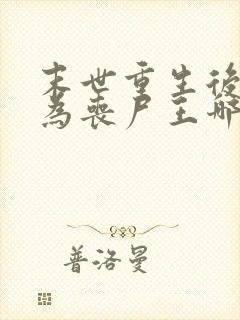 末世重生後
為喪尸王哪
普洛曼